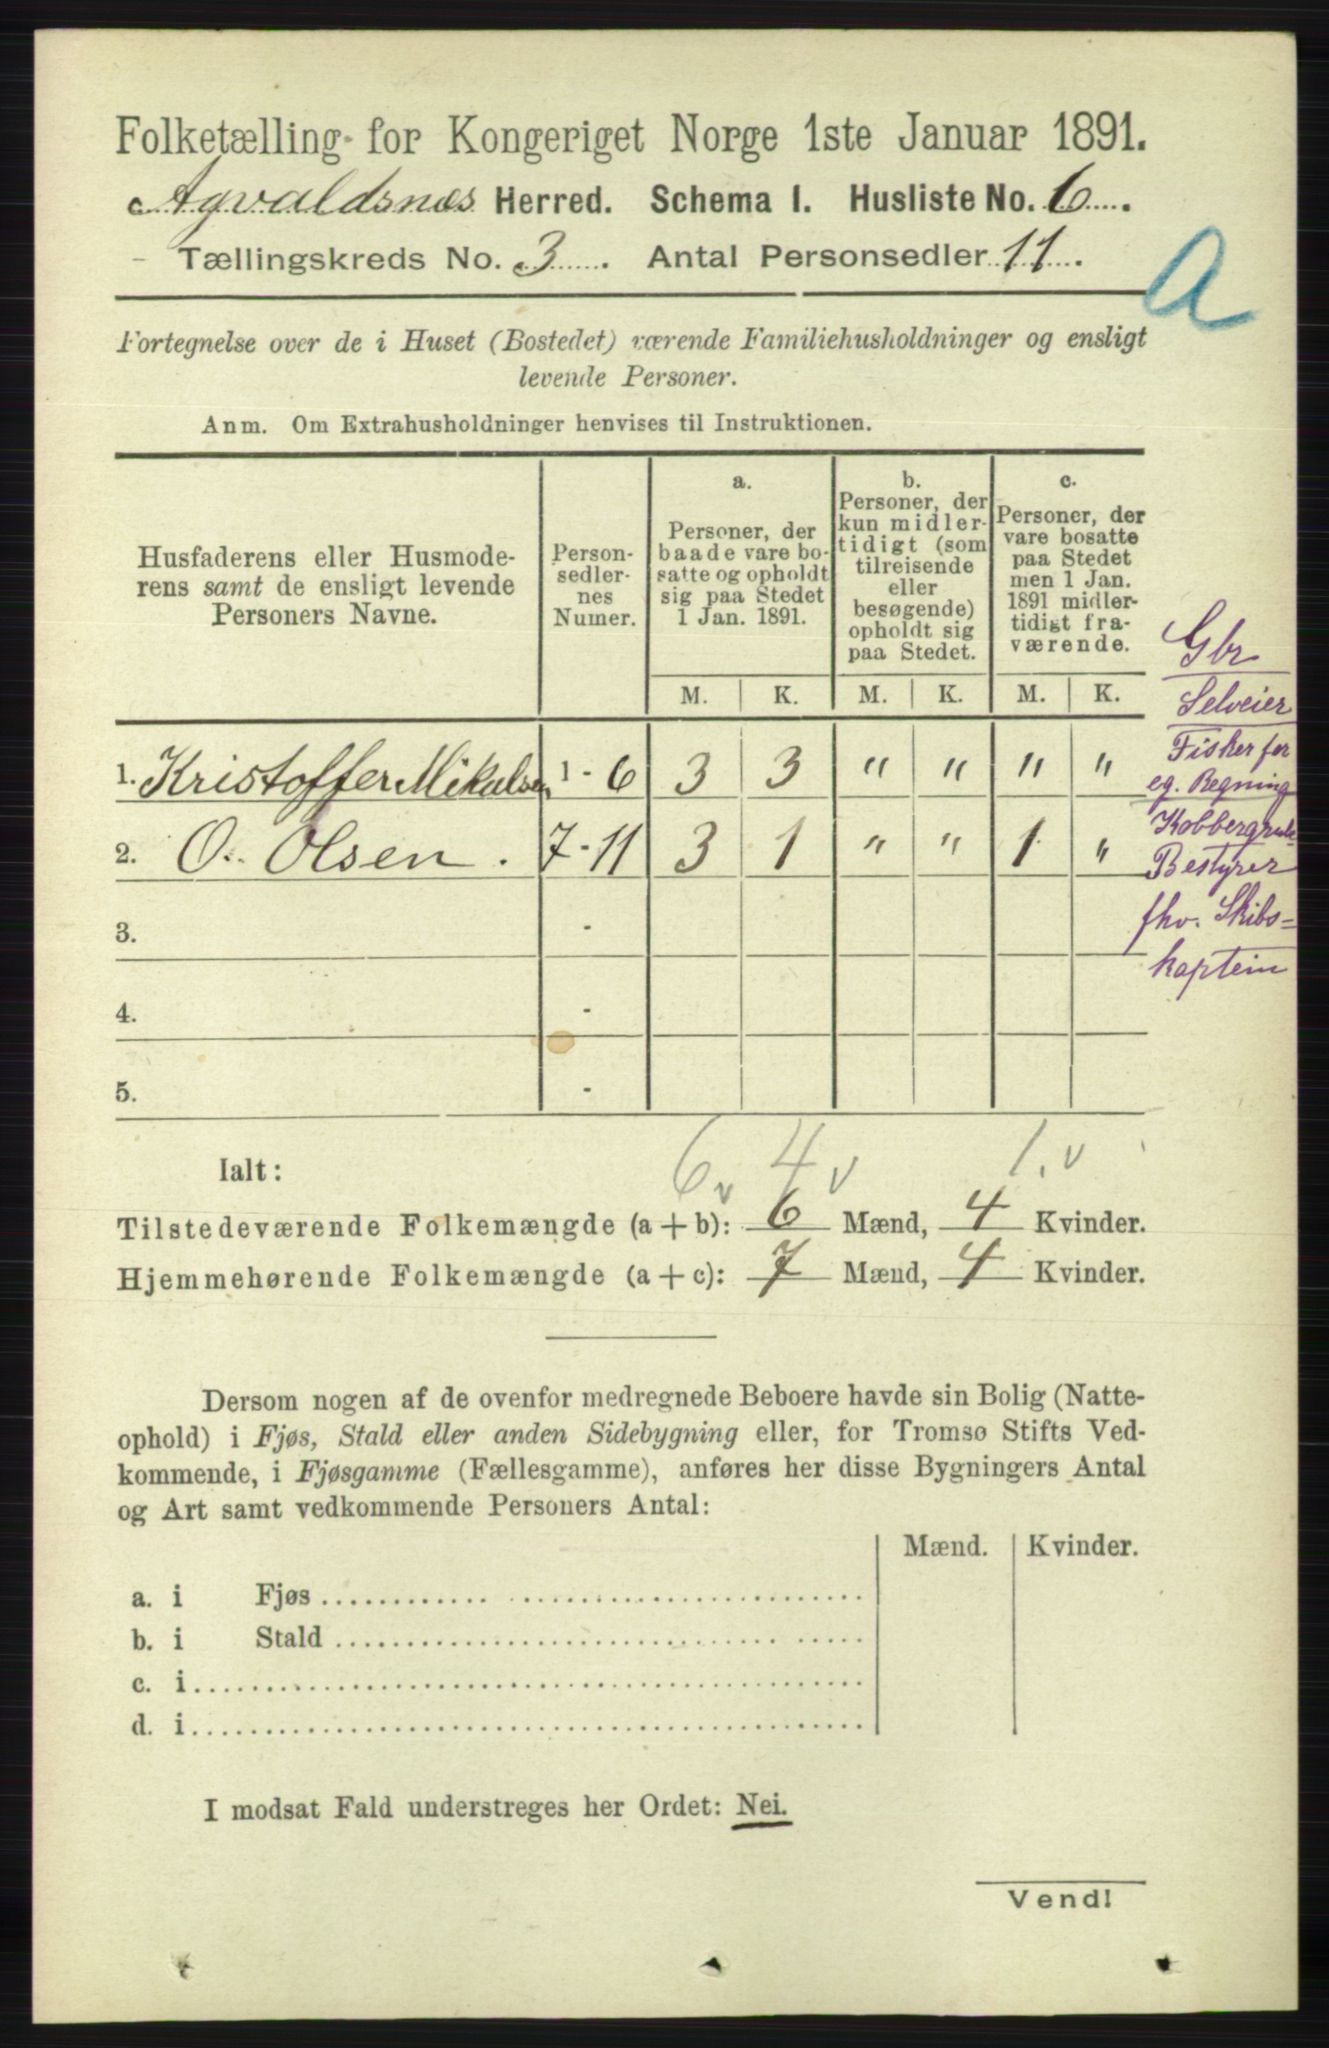 Folketælling for Kongeriget Norge 1ste Januar 1891.
Agvaldsnæs Herred. Schema I. Husliste No. 6.
Tællingskreds No. 3. Antal Personsedler 11.
A
Fortegnelse over de i Huset (Bostedet) værende Familiehusholdninger og ensligt
levende Personer.
Anm. Om Extrahusholdninger henvises til Instruktionen.
Husfaderens eller Husmode-
rens samt de ensligt levende
Personers Navne.
Person-
sedler-
nes
Numer.
a.
Personer, der
baade vare bo-
satte og opholdt
sig paa Stedet
1 Jan. 1891.
b.
Personer, der
kun midler-
tidigt (som
tilreisende
eller
besøgende)
opholdt sig
paa Stedet.
c.
Personer, der
vare bosatte
paa Stedet
men 1 Jan.
1891 midler-
tidigt fra-
værende.
M. K. M. K. M. K.
1. Kristoffer Mikalsen 1 - 6 3 3 " " " "
2. O. Olsen. 7 - 11 3 1 " " 1 "
3. -
4. -
5. -
Gbr
Selveier
Fisker for
eg. Regning
Kobbergrube
Bestyrer
fhv. Skibs=
kaptein
6 v 4 v 1. v
Ialt:
Tilstedeværende Folkemængde (a + b): 6 Mænd, 4 Kvinder.
Hjemmehørende Folkemængde (a + c): 7 Mænd, 4 Kvinder.
Dersom nogen af de ovenfor medregnede Beboere havde sin Bolig (Natte-
ophold) i Fjøs, Stald eller anden Sidebygning eller, for Tromsø Stifts Ved-
kommende, i Fjøsgamme (Fællesgamme), anføres her disse Bygningers Antal
og Art samt vedkommende Personers Antal:
Mænd. Kvinder.
a. i Fjøs
b. i Stald
c. i
d. i
I modsat Fald understreges her Ordet: Nei.
Vend!